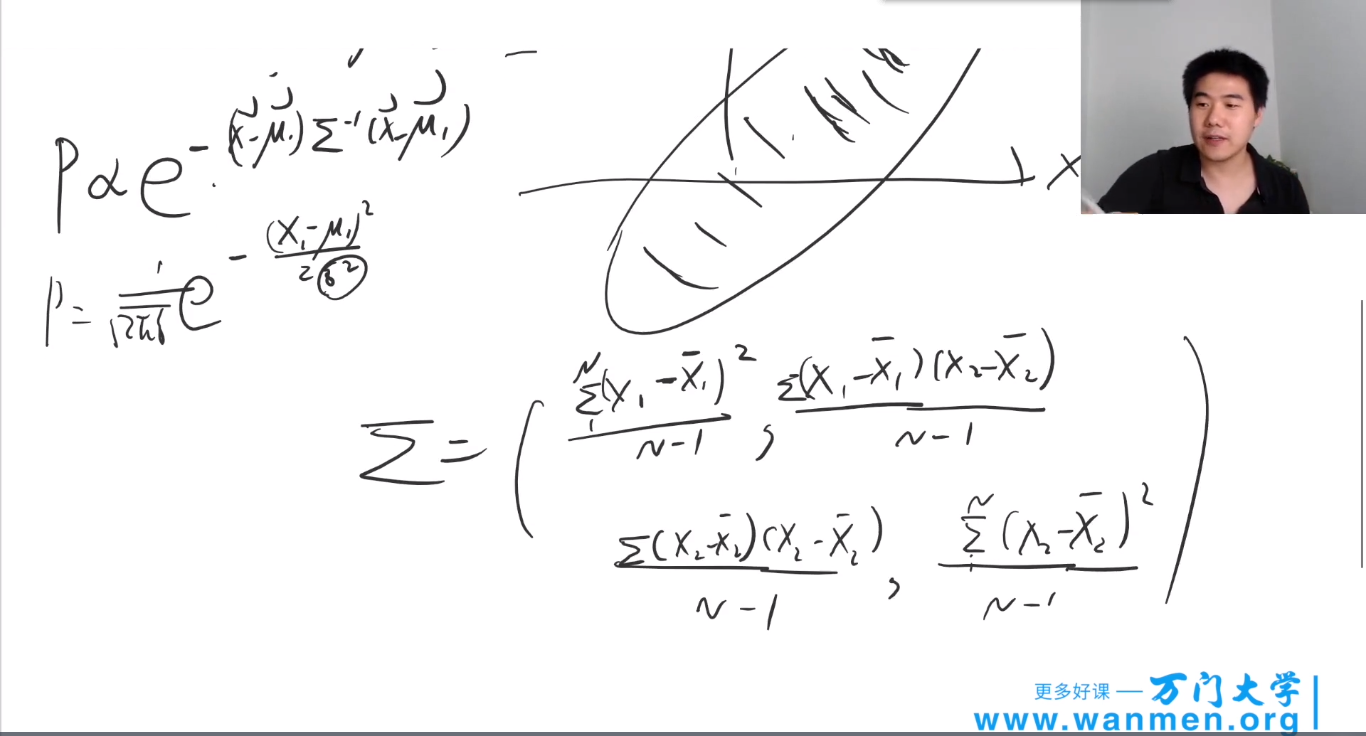 P ∝ e^{-(x⃗-μ⃗₁)Σ⁻¹(x⃗-μ⃗₁)}
X
P = \frac{1}{\sqrt{2π}σ} e^{-\frac{(X₁-μ₁)²}{2σ²}}
Σ = ( \frac{\sum_{1}^{N}(X₁-\bar{X}₁)²}{N-1} , \frac{Σ(X₁-\bar{X}₁)(X₂-\bar{X}₂)}{N-1}
\frac{Σ(X₂-\bar{X}₂)(X₂-\bar{X}₂)}{N-1} , \frac{\sum_{1}^{N}(X₂-\bar{X}₂)²}{N-1} )
更多好课 — 万门大学
www.wanmen.org